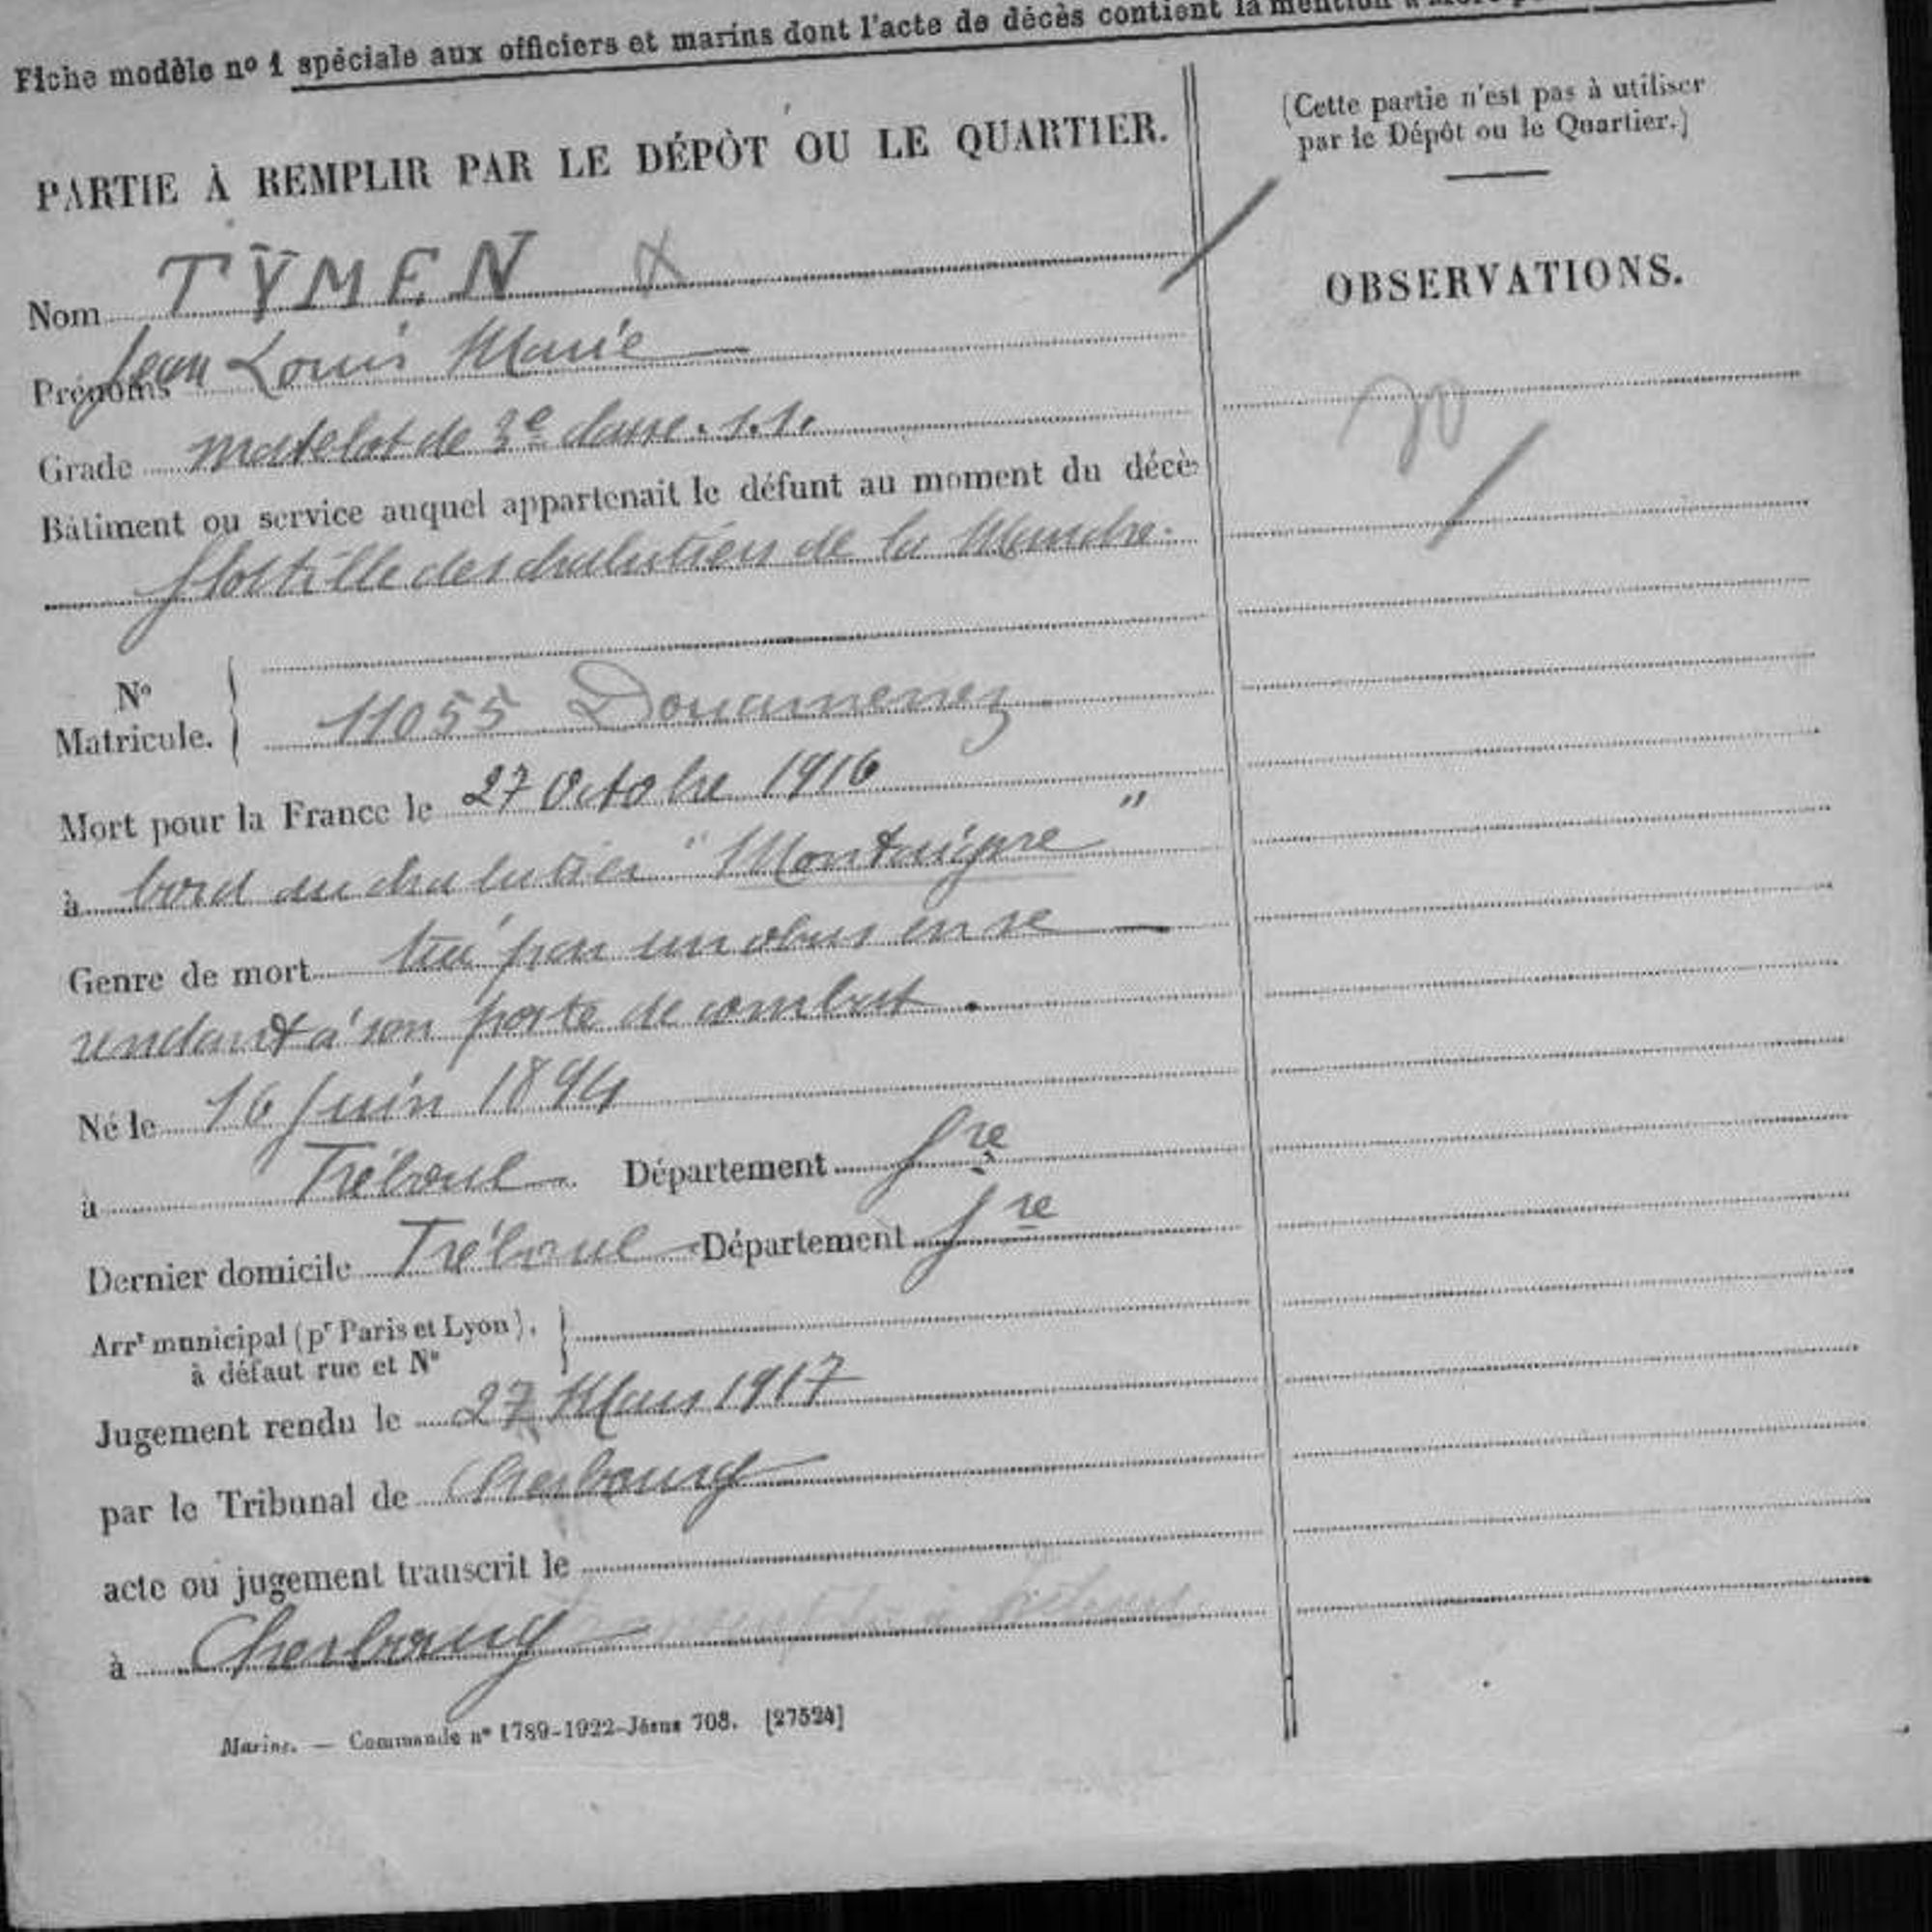 Fiche modèle nº 1 spéciale aux officiers et marins dont l'acte de décès contient la mention
PARTIE À REMPLIR PAR LE DÉPÔT OU LE QUARTIER.
Nom TŸMEN
Prénoms Jean Louis Marie
Grade matelot de 3e classe. s.s.
Bâtiment ou service auquel appartenait le défunt au moment du décès
flottille des chalutiers de la Manche.
Nº Matricule. 11055 Douarnenez
Mort pour la France le 27 Octobre 1916
à bord du chalutier "Montaigne"
Genre de mort tué par un obus en se
rendant à son poste de combat.
Né le 16 Juin 1894
à Tréboul Département fre
Dernier domicile Tréboul Département fre
Arrt municipal (pr Paris et Lyon),
à défaut rue et Nº
Jugement rendu le 27 Mars 1917
par le Tribunal de Cherbourg
acte ou jugement transcrit le
à Cherbourg
Marine. — Commande nº 1789-1922-Jésus 708. [27524]
(Cette partie n'est pas à utiliser
par le Dépôt ou le Quartier.)
OBSERVATIONS.